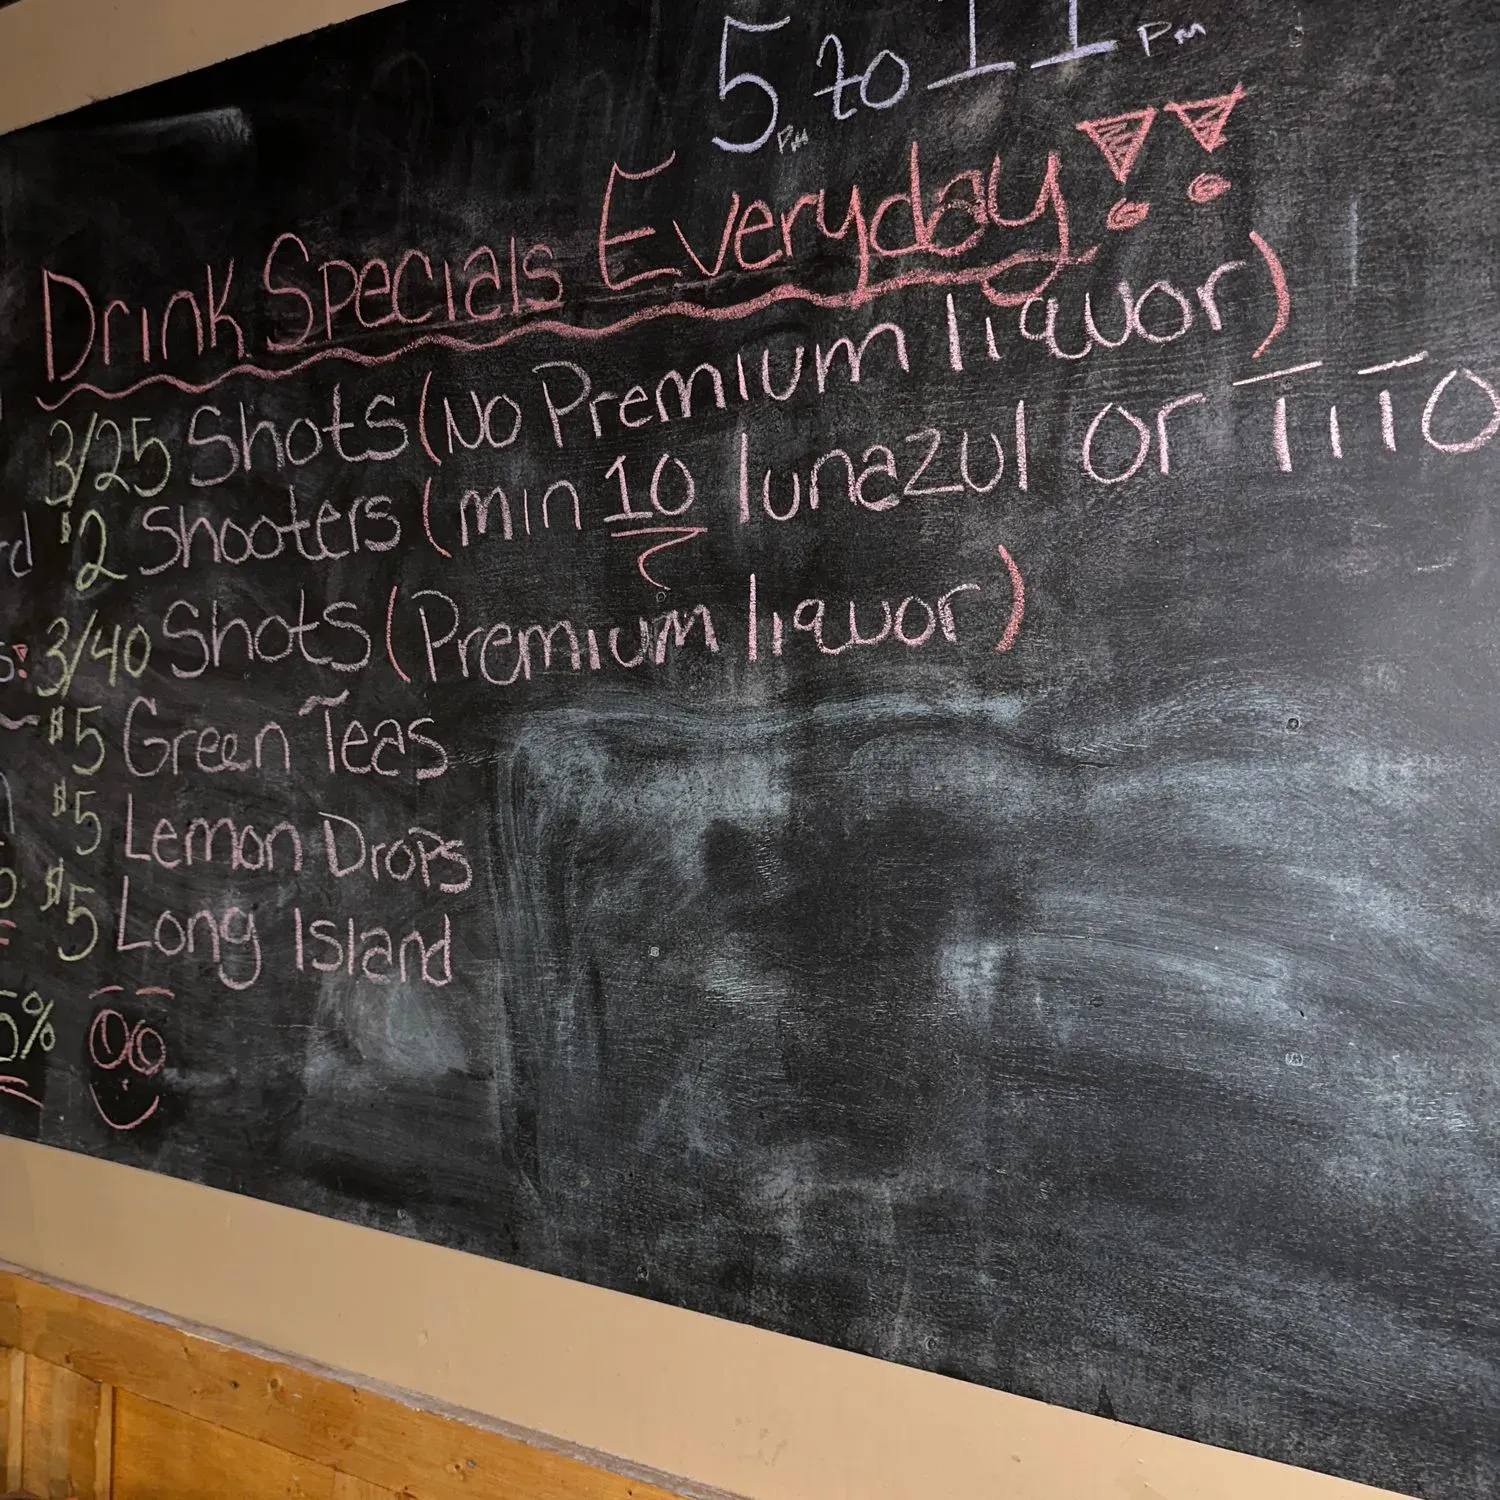 5 PM to 11 PM
Drink Specials Everyday!!
3/25 Shots (No Premium liquor)
$2 Shooters (min 10 lunazul or TiTO
3/40 Shots (Premium liquor)
$5 Green Teas
$5 Lemon Drops
$5 Long Island
rd
s!
5%